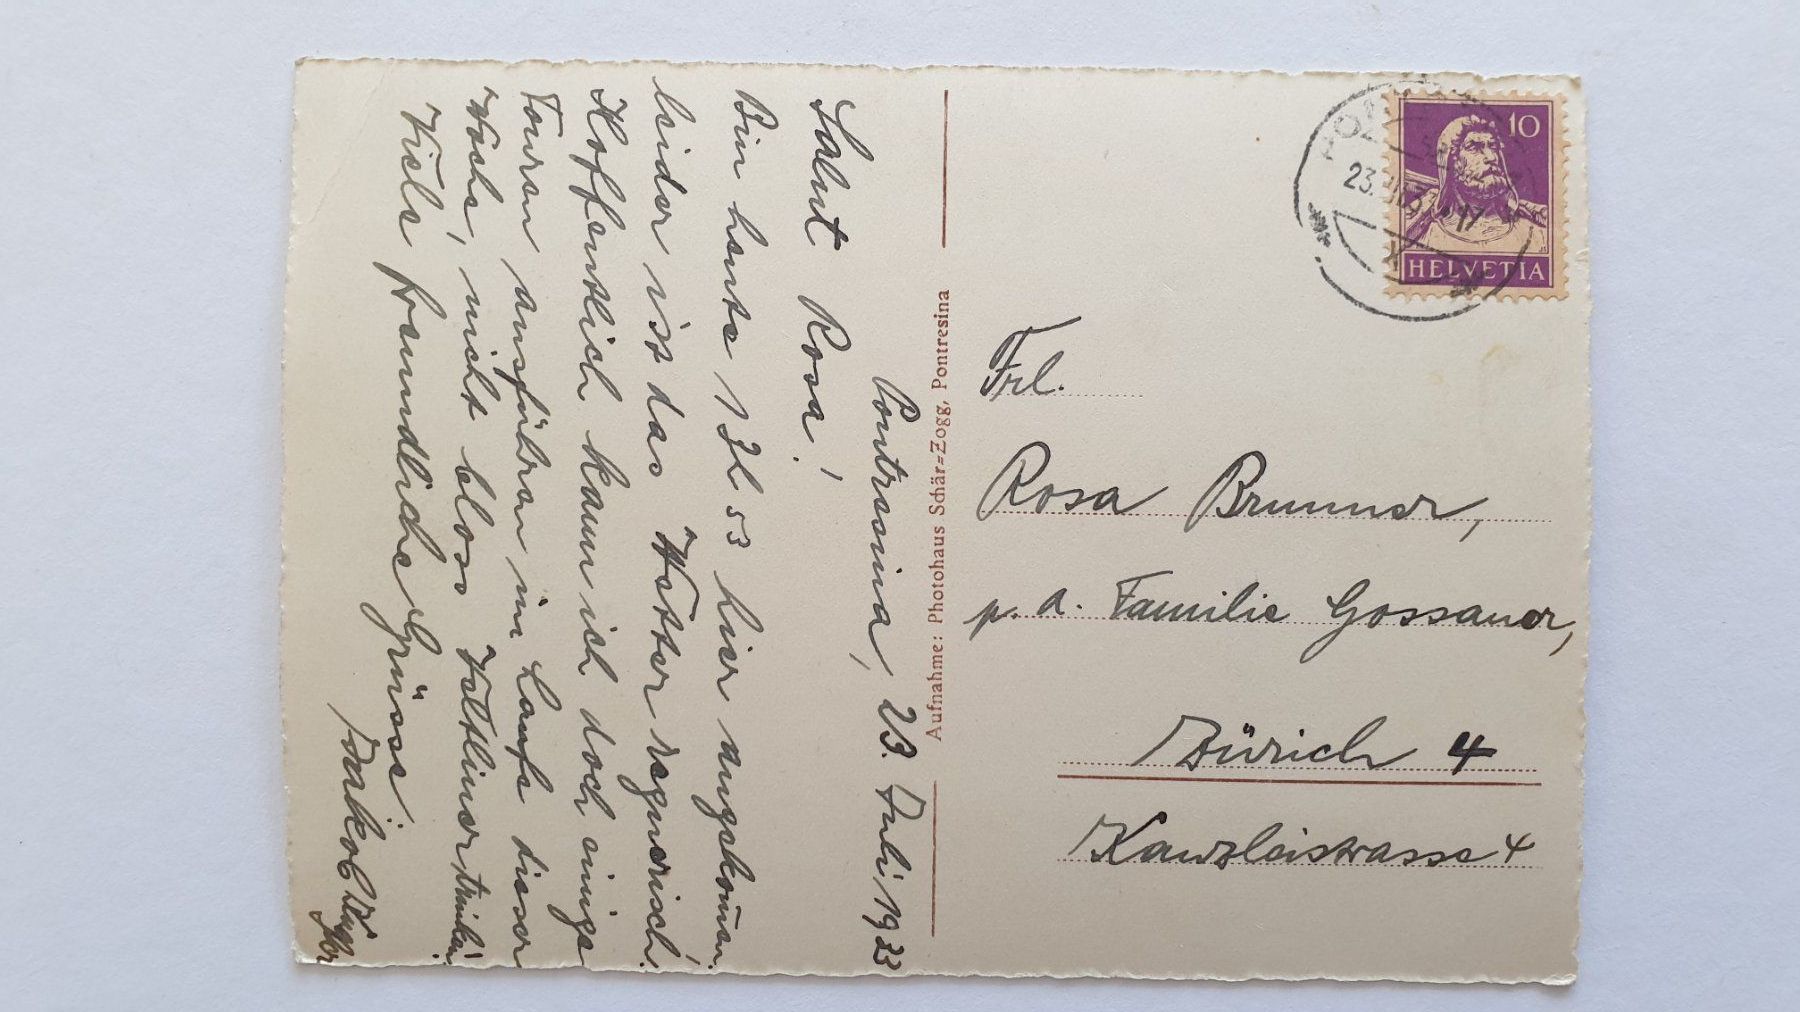 Pontresina, 23. Juli 1933
Salut Rosa!
Bin heute 17h 53 hier angekom̅en.
leider ist das Wetter regnerisch!
Hoffentlich kann ich doch einige
Touren ausführen im Laufe dieser
Woche, nicht bloss Veltliner trinken!
Viele freundliche Grüsse:
Aufnahme: Photohaus Schär=Zogg, Pontresina
10
HELVETIA
23. 17
Frl.
Rosa Brunner,
p. a. Familie Gossauer,
Zürich 4
Kanzleistrasse 4